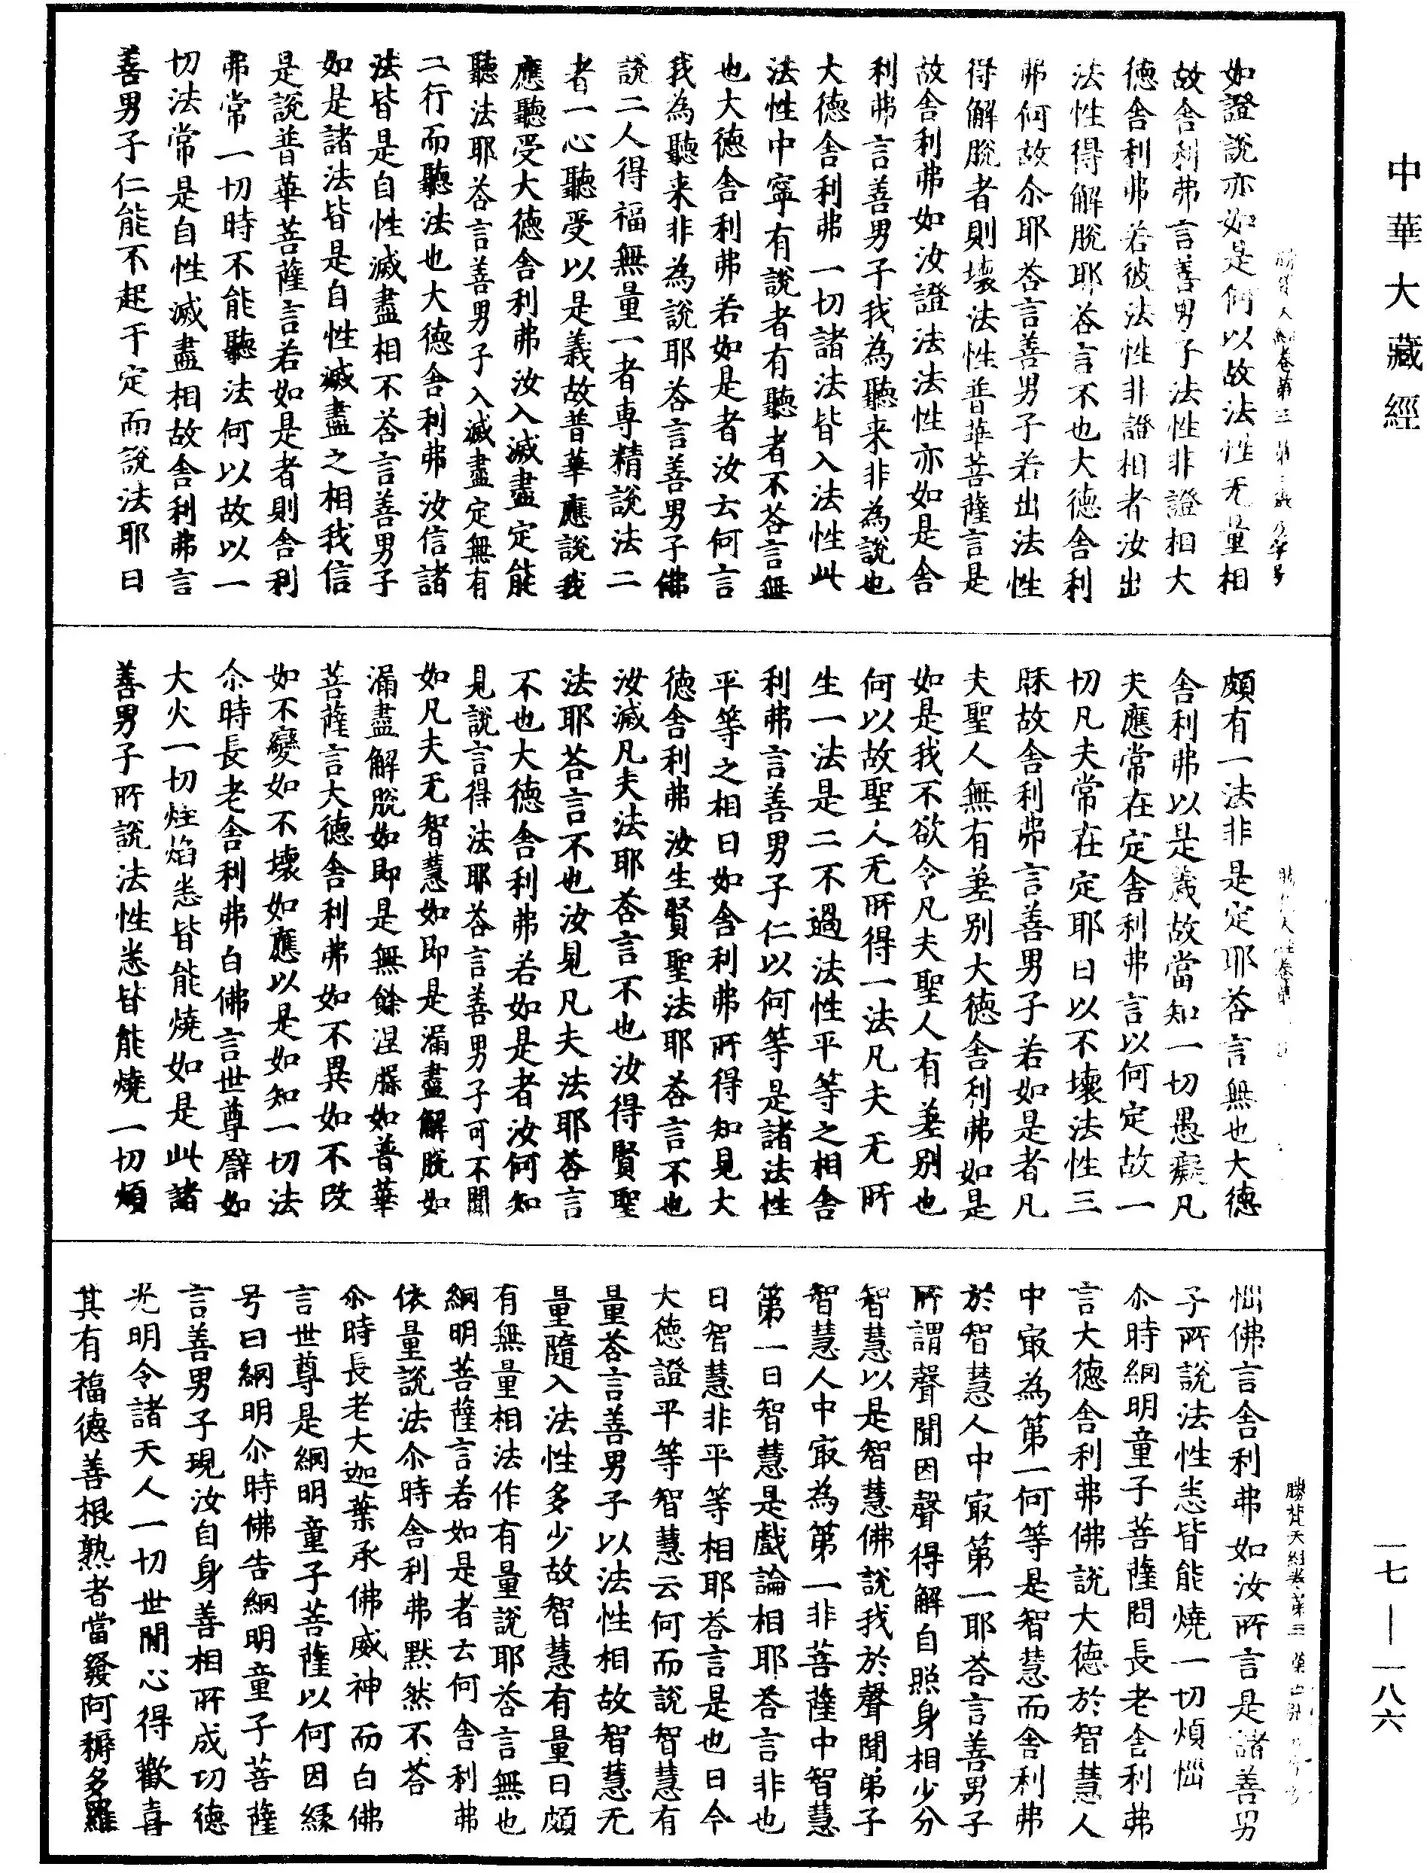 中華大藏經
如證說亦如是何以故法性无量相
故舍利弗言善男子法性非證相大
德舍利弗若彼法性非證相者汝出
法性得解脫耶荅言不也大德舍利
弗何故尒耶荅言善男子若出法性
得解脫者則壞法性普華菩薩言是
故舍利弗如汝證法法性亦如是舍
利弗言善男子我為聽来非為說也
大德舍利弗一切諸法皆入法性此
法性中寧有說者有聽者不荅言無
也大德舍利弗若如是者汝云何言
我為聽来非為說耶荅言善男子佛
說二人得福無量一者專精說法二
者一心聽受以是義故普華應說我
應聽受大德舍利弗汝入滅盡定能
聽法耶荅言善男子入滅盡定無有
二行而聽法也大德舍利弗汝信諸
法皆是自性滅盡相不荅言善男子
如是諸法皆是自性滅盡之相我信
是說普華菩薩言若如是者則舍利
弗常一切時不能聽法何以故以一
切法常是自性滅盡相故舍利弗言
善男子仁能不起于定而說法耶曰
頗有一法非是定耶荅言無也大德
舍利弗以是義故當知一切愚癡凡
夫應常在定舍利弗言以何定故一
切凡夫常在定耶曰以不壞法性三
昧故舍利弗言善男子若如是者凡
夫聖人無有差別大德舍利弗如是
如是我不欲令凡夫聖人有差別也
何以故聖人无所得一法凡夫无所
生一法是二不過法性平等之相舍
利弗言善男子仁以何等是諸法性
平等之相曰如舍利弗所得知見大
德舍利弗汝生賢聖法耶荅言不也
汝滅凡夫法耶荅言不也汝得賢聖
法耶荅言不也汝見凡夫法耶荅言
不也大德舍利弗若如是者汝何知
見說言得法耶荅言善男子可不聞
如凡夫无智慧如即是漏盡解脫如
漏盡解脫如即是無餘涅槃如普華
菩薩言大德舍利弗如不異如不改
如不變如不壞如應以是如知一切法
尒時長老舍利弗白佛言世尊譬如
大火一切炷焰悉皆能燒如是此諸
善男子所說法性悉皆能燒一切煩
惱佛言舍利弗如汝所言是諸善男
子所說法性悉皆能燒一切煩惱
尒時網明童子菩薩問長老舍利弗
言大德舍利弗佛說大德於智慧人
中㝡為第一何等是智慧而舍利弗
於智慧人中㝡第一耶荅言善男子
所謂聲聞因聲得解自照身相少分
智慧以是智慧佛說我於聲聞弟子
智慧人中㝡為第一非菩薩中智慧
第一曰智慧是戲論相耶荅言非也
曰智慧非平等相耶荅言是也曰今
大德證平等智慧云何而說智慧有
量荅言善男子以法性相故智慧无
量隨入法性多少故智慧有量曰頗
有無量相法作有量說耶荅言無也
網明菩薩言若如是者云何舍利弗
依量說法尒時舍利弗默然不荅
尒時長老大迦葉承佛威神而白佛
言世尊是網明童子菩薩以何因緣
号曰網明尒時佛告網明童子菩薩
言善男子現汝自身善相所成功德
光明令諸天人一切世間心得歡喜
其有福德善根熟者當發阿耨多羅
勝梵天經卷第三
一七—一八六